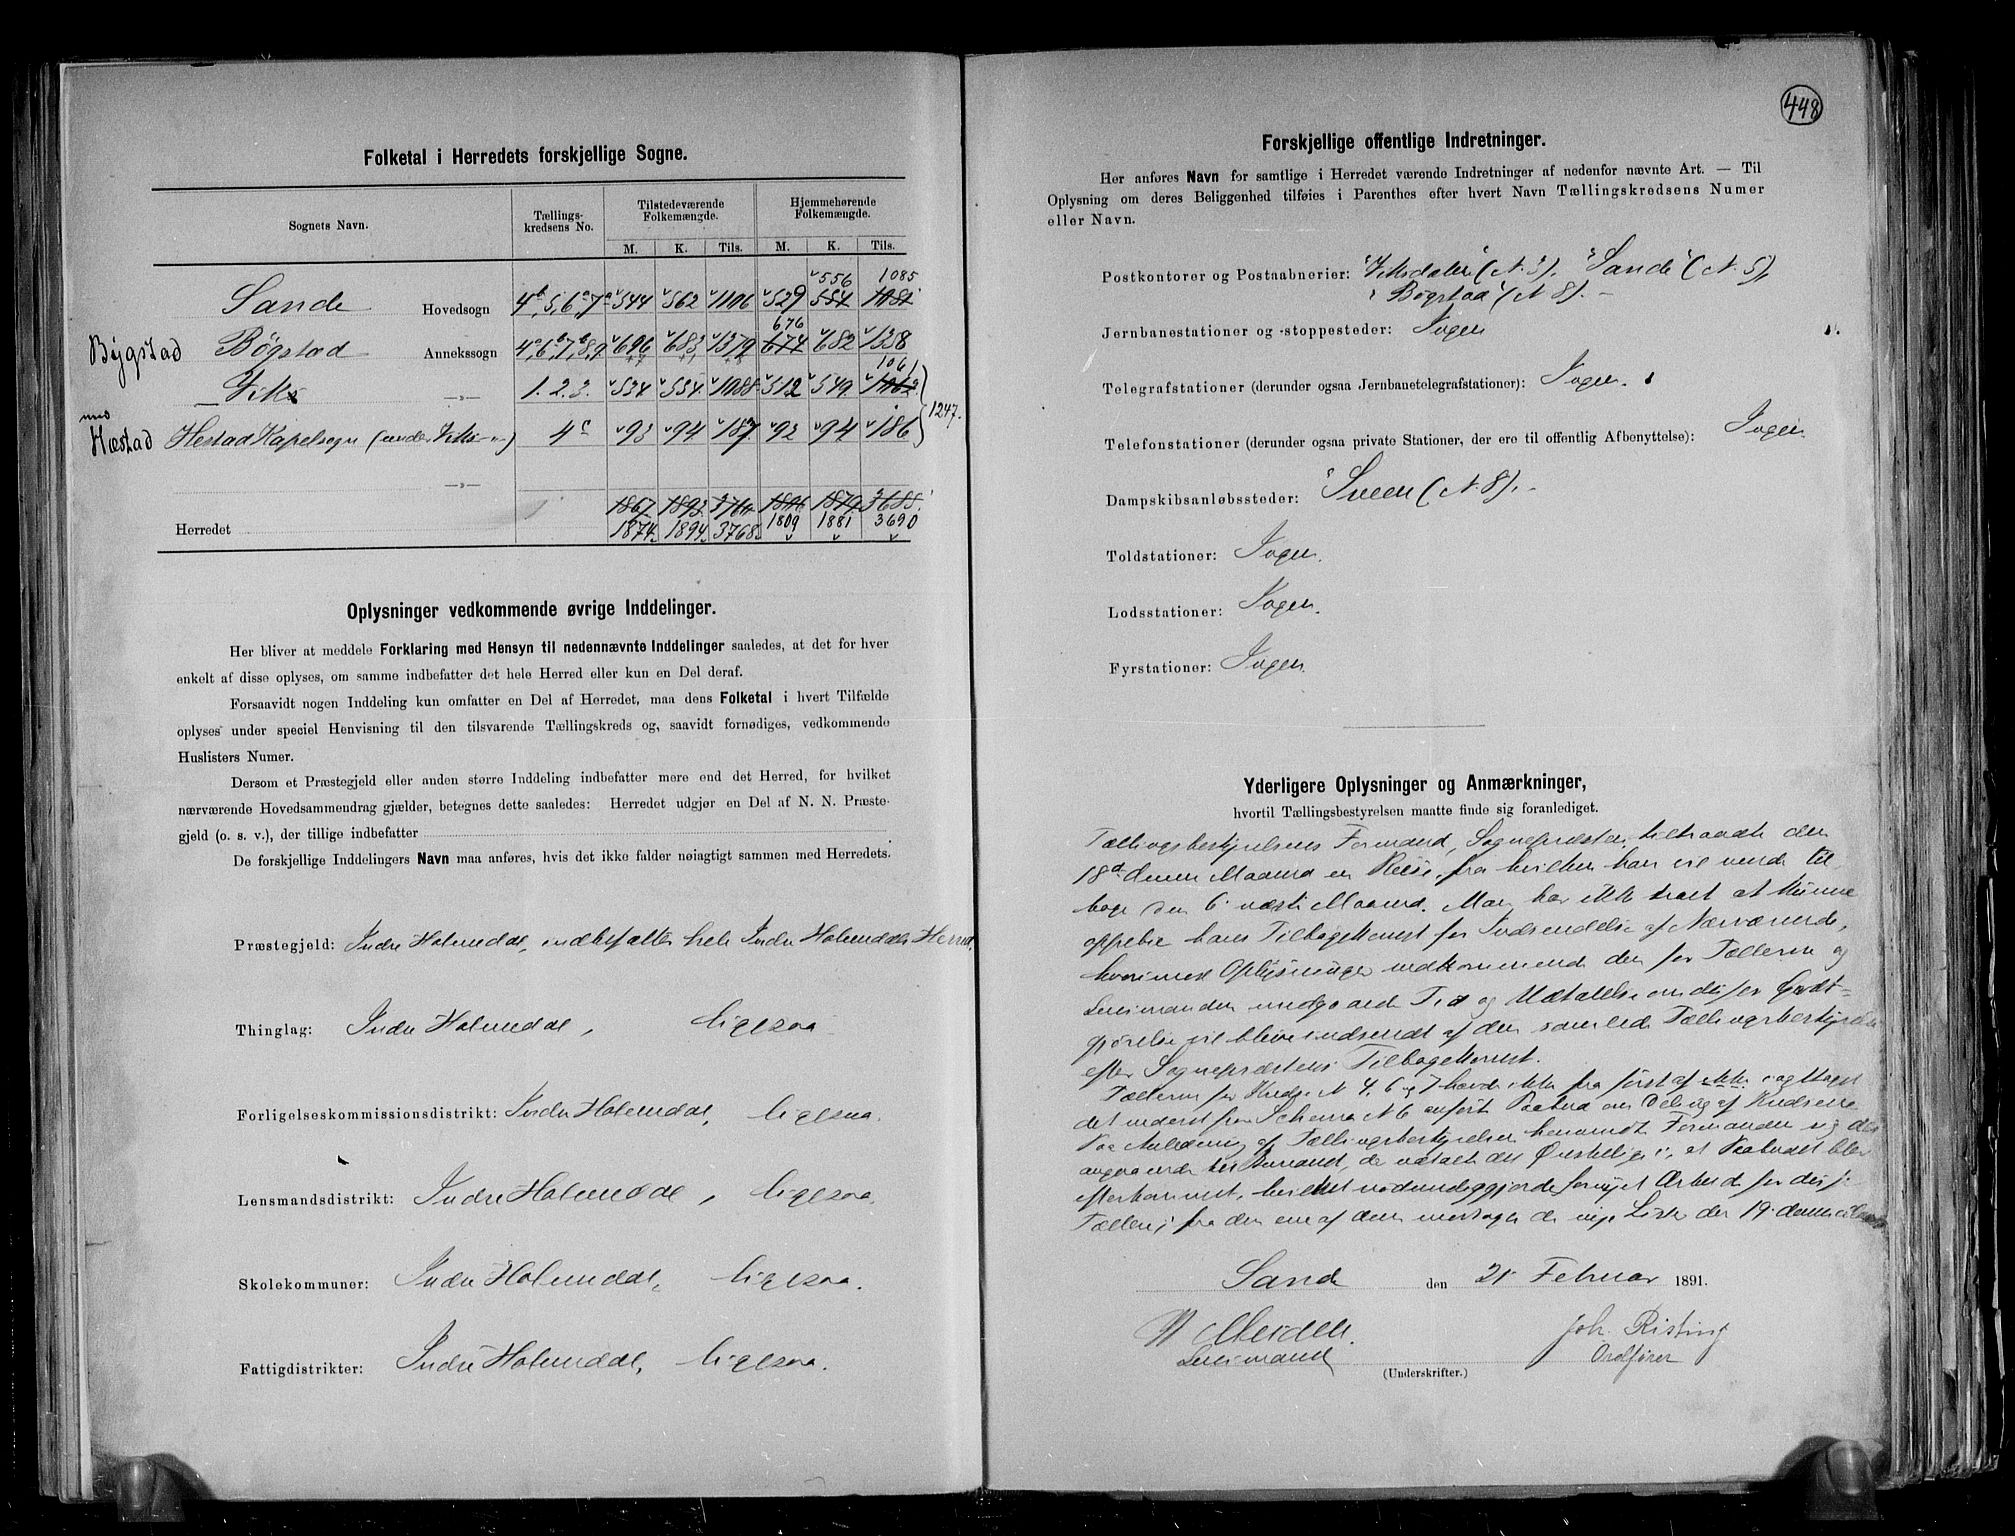 Folketal i Herredets forskjellige Sogne.
Sognets Navn. Tællings-kredsens No. Tilstedeværende Folkemængde. Hjemmehørende Folkemængde.
M. K. Tils. M. K. Tils.
556 1085
Sande Hovedsogn 4b, 5, 6a, 7a 544 562 1106 529 554 1081
676
Bygstad Bögstad Annekssogn 4a, 6b, 7b, 8, 9 696 683 1379 674 682 1358
1061
Viks —„— 1. 2. 3. 534 554 1088 512 549 1062
med
Hæstad Hestad Kapelsogn (under Viks —„—) 4c 93 94 187 92 94 186 1247.
—„—
1867 1893 3760 1806 1879 3685
Herredet 1874 1894 3768 1809 1881 3690
Oplysninger vedkommende øvrige Inddelinger.
Her bliver at meddele Forklaring med Hensyn til nedennævnte Inddelinger saaledes, at det for hver
enkelt af disse oplyses, om samme indbefatter det hele Herred eller kun en Del deraf.
Forsaavidt nogen Inddeling kun omfatter en Del af Herredet, maa dens Folketal i hvert Tilfælde
oplyses under speciel Henvisning til den tilsvarende Tællingskreds og, saavidt fornødiges, vedkommende
Huslisters Numer.
Dersom et Præstegjeld eller anden større Inddeling indbefatter mere end det Herred, for hvilket
nærværende Hovedsammendrag gjælder, betegnes dette saaledes: Herredet udgjør en Del af N. N. Præste-
gjeld (o. s. v.), der tillige indbefatter
De forskjellige Inddelingers Navn maa anføres, hvis det ikke falder nøiagtigt sammen med Herredets.
Præstegjeld: Indre Holmedal, indbefatter hele Indre Holmedals Herred,
Thinglag: Indre Holmedal, ligesaa
Forligelseskommissionsdistrikt: Indre Holmedal, ligesaa.
Lensmandsdistrikt: Indre Holmedal, ligesaa.
Skolekommuner: Indre Holmedal, ligesaa.
Fattigdistrikter: Indre Holmedal, ligesaa.
448
Forskjellige offentlige Indretninger.
Her anføres Navn for samtlige i Herredet værende Indretninger af nedenfor nævnte Art. — Til
Oplysning om deres Beliggenhed tilføies i Parenthes efter hvert Navn Tællingskredsens Numer
eller Navn.
Postkontorer og Postaabnerier: "Viksdalen" (N. 3). "Sande" (N. 5),
"Bögstad" (N 8). –
Jernbanestationer og -stoppesteder: Ingen
Telegrafstationer (derunder ogsaa Jernbanetelegrafstationer): Ingen.
Telefonstationer (derunder ogsaa private Stationer, der ere til offentlig Afbenyttelse): Ingen.
Dampskibsanløbssteder: "Sveen" (N. 8). –
Toldstationer: Ingen.
Lodsstationer: Ingen.
Fyrstationer: Ingen.
Yderligere Oplysninger og Anmærkninger,
hvortil Tællingsbestyrelsen maatte finde sig foranlediget.
Tællingsbestyrelsens Formand, Sognepræsten, tiltraadte den
18de denne Maaned en Reise, fra hvilken han vil vende til-
bage den 6. næste Maaned. Man har ikke troet at kunne
oppebie hans Tilbagekomst for Indsendelse af Nærværende,
hvorimod Oplysninger vedkommende den for Tællerne og
Lensmanden medgaaede Tid og Udtalelse om disses Godt-
gjörelse vil blive indsendt af den samlede Tællingsbestyrelse
efter Sognepræstens Tilbagekomst.
Tællerne for Kredse N 4, 6 og 7 havde ikke fra först af
det nederst paa Schema N 6 anförte Paabud om Deling af Kredsene
Paa Anledning af Tællingsbestyrelsen henvendte Formanden sig
at Paabudet blev
efterkommet, hvilket nödvendiggjorde fornyet Arbeide for disse
Tællere; fra den ene af dem modtoges de nye Lister den 19. denne
Sande den 21 Februar 1891.
Joh. Risting
Lensmand Ordförer
(Underskrifter.)